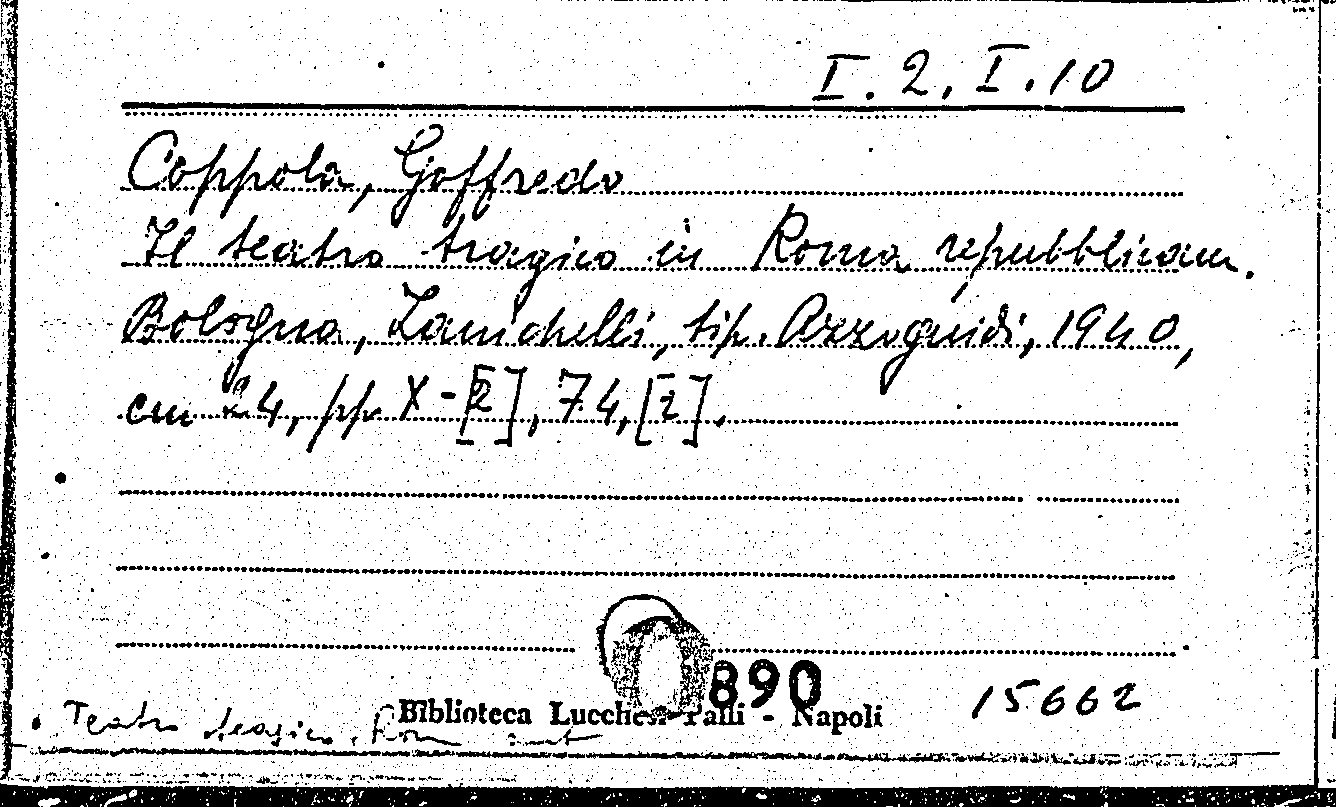 I. 2. I. 10
Coppola, Goffredo
Il teatro tragico in Roma repubblicana.
Bologna, Zanichelli, tip. Azzoguidi, 1940,
cm 24, pp. X-[2], 74, [2].
890
15662
Biblioteca Lucchesi Palli - Napoli
Teatro tragico. Rom